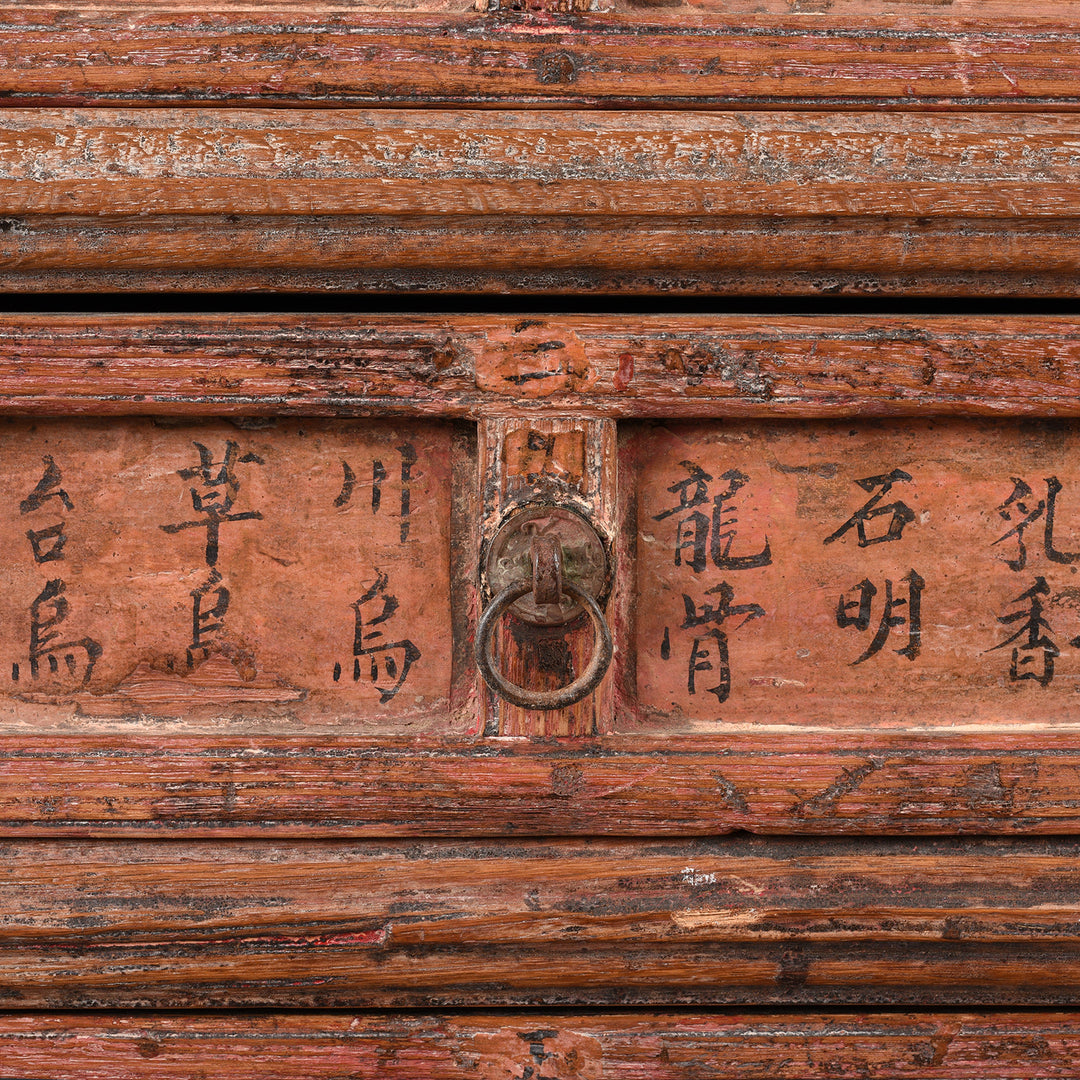 二
乳香
石明
龍骨
川烏
草烏
台烏